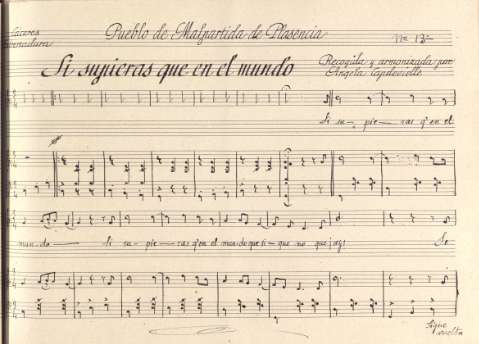 Cáceres
Pueblo de Malpartida de Plasencia
Nº 13
Si supieras que en el mundo
Recogida y armonizada por
Angela Capdevielle
Si su- pie- ras q'en el
mun-do Si su- pie- ras q'en el mun-do que si- que no que jay! Se
Sigue
vuelta